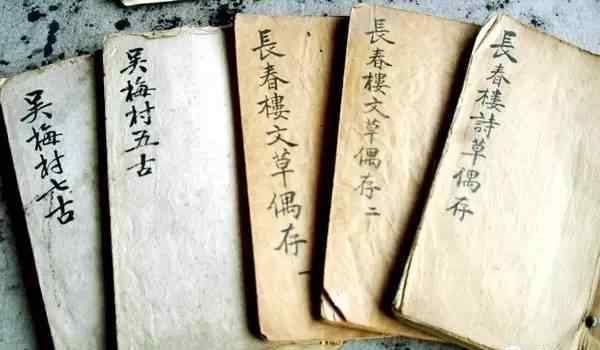 吴梅村七古
吴梅村五古
長春樓文草偶存一
長春樓文草偶存二
長春樓詩草偶存